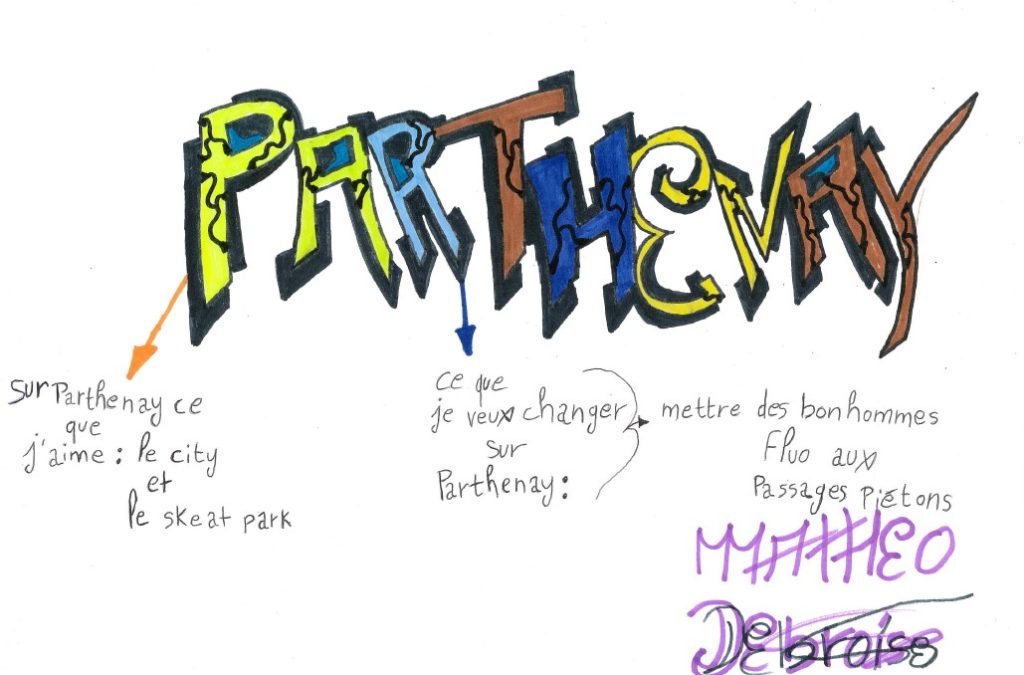 PARTHENAY
sur Parthenay ce
que
j'aime : le city
et
le skeat park
ce que
je veux changer
sur
Parthenay :
mettre des bonhommes
Fluo aux
Passages piétons
MATHEO
Debroise